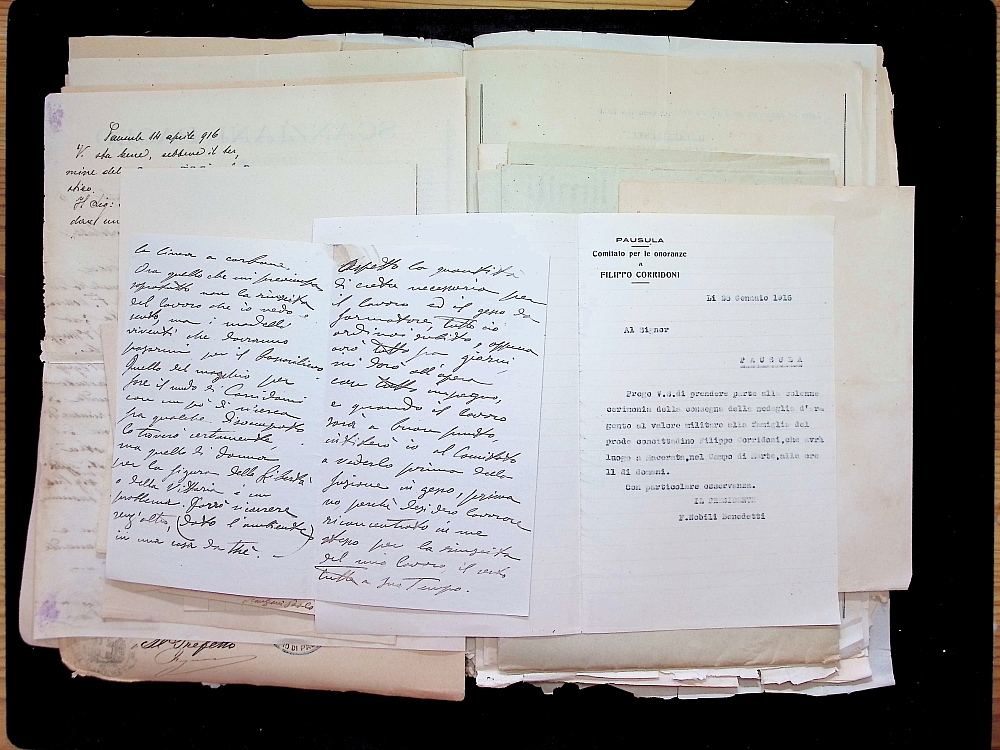 Pausula 14 aprile 916
V. sta bene, sebbene il ter,
mine del
stico.
la linea a carbone.
Ora quello che mi preoccupa
soprattutto non la riuscita
del lavoro che io vedo e
sento, ma i modelli
viventi che dovranno
posarmi per il
Quello del maschio per
fare il nudo di Corridoni
con un pò di ricerca
fra qualche disoccupato
lo troverò certamente,
ma quello di donna
per la figura della Libertà
o della Vittoria è un
problema. Dovrò ricorrere
senz'altro, (dato l'ambiente)
in una casa da thè. -
Aspetto la quantità
di creta necessaria per
il lavoro ed il gesso da
formatore, tutto ciò
ordinai subito, appena
avrò tutto fra giorni,
mi darò all'opera
con tutto impegno,
e quando il lavoro
sarà a buon punto,
inviterò io il Comitato
a vederlo prima della
fusione in gesso, prima
no perchè desidero lavorare
riconcentrato in me
stesso per la riuscita
del mio lavoro, il resto
tutto a suo Tempo.
PAUSULA
Comitato per le onoranze
a
FILIPPO CORRIDONI
Li 28 Gennaio 1916
Al Signor
PAUSULA
Prego V.S. di prendere parte alla solenne
cerimonia della consegna della medaglia d'ar
gento al valore militare alla famiglia del
prode concittadino Filippo Corridoni, che avrà
luogo a Macerata, nel Campo di Marte, alle ore
11 di domani.
Con particolare osservanza.
IL PRESIDENTE
F. Nobili Benedetti
Il Prefetto